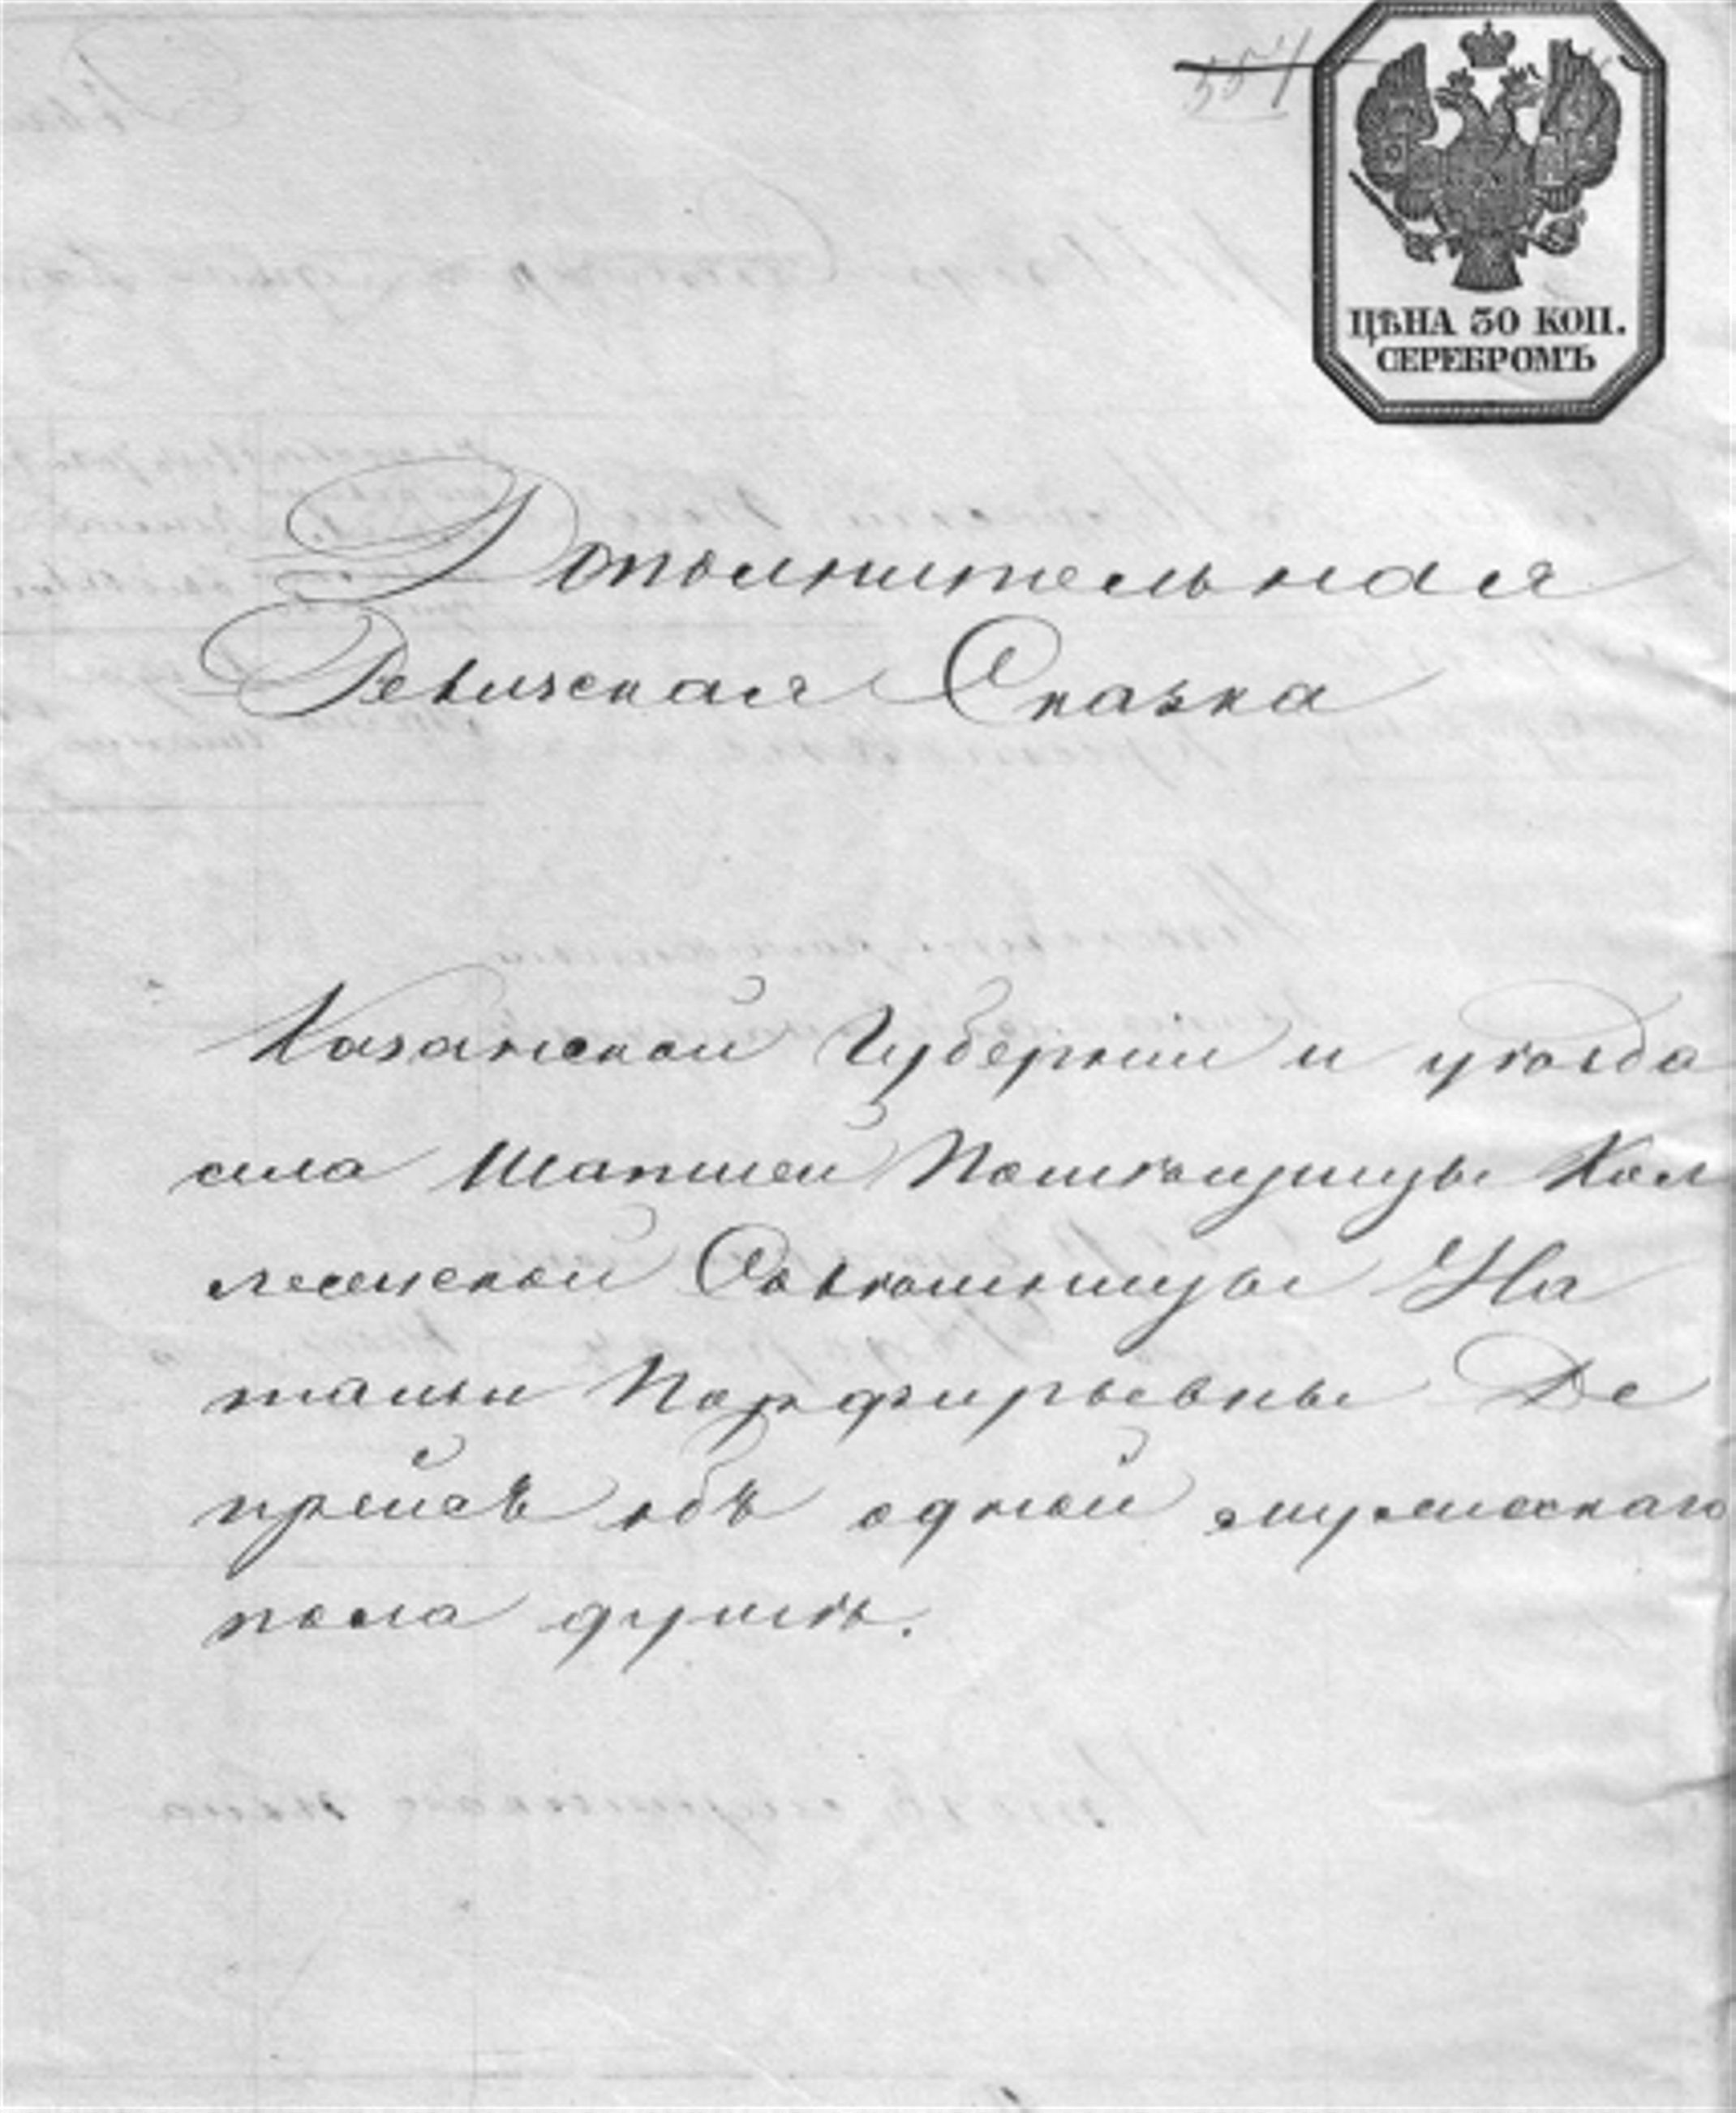 554
ЦѢНА 30 КОП.
СЕРЕБРОМЪ
Дополнительная
Ревизская Сказка
Казанской Губерніи и уѣзда
села Шапшей Помѣщицы Кол
лежской Совѣтницы На
тальи Порфирьевны Де
прейсъ объ одной мужескаго
пола душѣ.